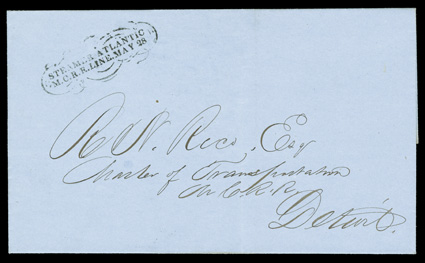 STEAMER ATLANTIC
M.C.R.R. LINE. MAY 28
R. N. Rice, Esq
Master of Transportation
M. C. R. R.
Detroit.